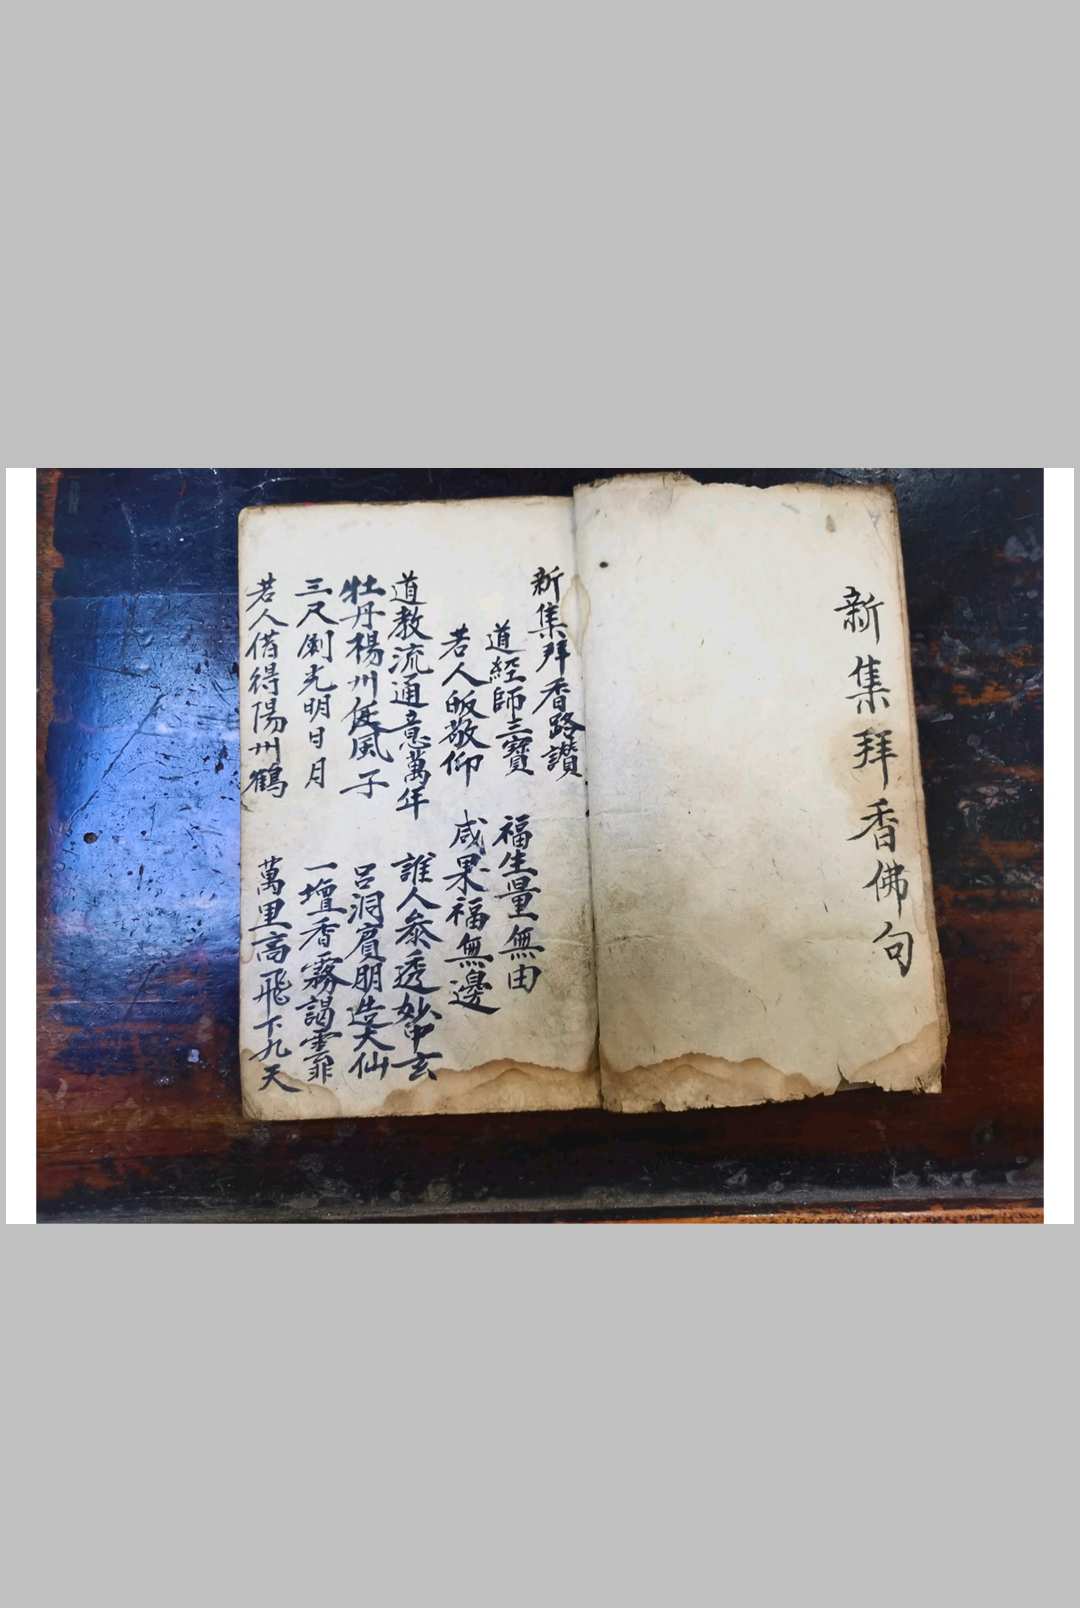 新集拜香佛句
新集拜香路讃
道經師三寶 福生量無由
若人皈敬仰 咸果福無邊
道教流通意萬年 誰人叅透妙中玄
牡丹楊州風子 呂洞賔朋造大仙
三尺劍光明日月 一壇香霧謁雲霏
若人借得陽州鶴 萬里高飛下九天